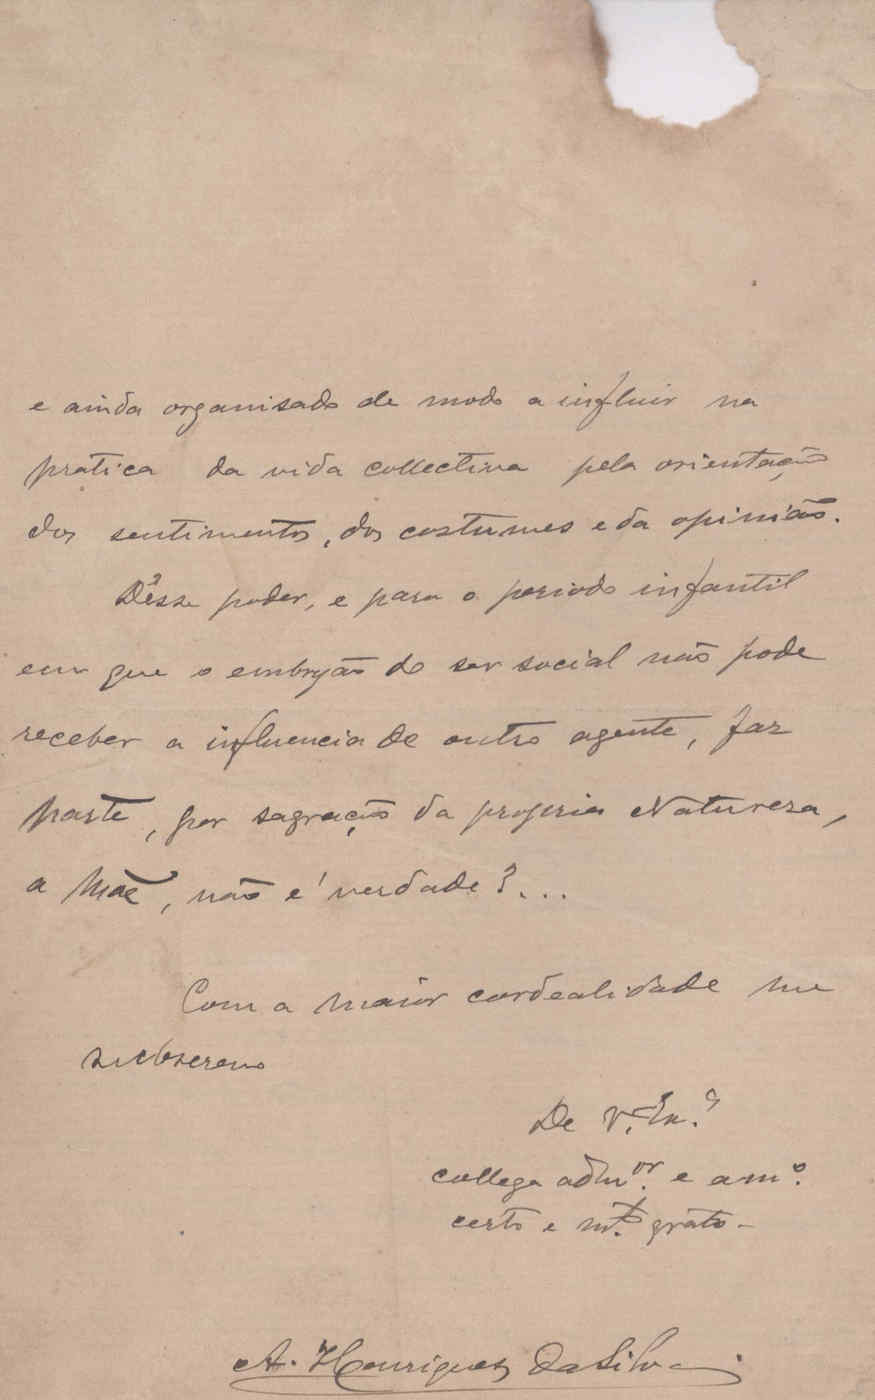 e ainda organisado de modo a influir na
pratica da vida collectiva pela orientação
dos sentimentos, dos costumes e da opinião.
Dêsse poder, e para o periodo infantil
em que o embryão do ser social não pode
receber a influencia de outro agente, faz
parte, por sagração da propria Natureza,
a Mãe, não é verdade?...
Com a maior cordealidade me
subscrevo
De V. Ex.ª
collega adm.or e am.º
certo e m.to grato -
A. Henriques da Silva